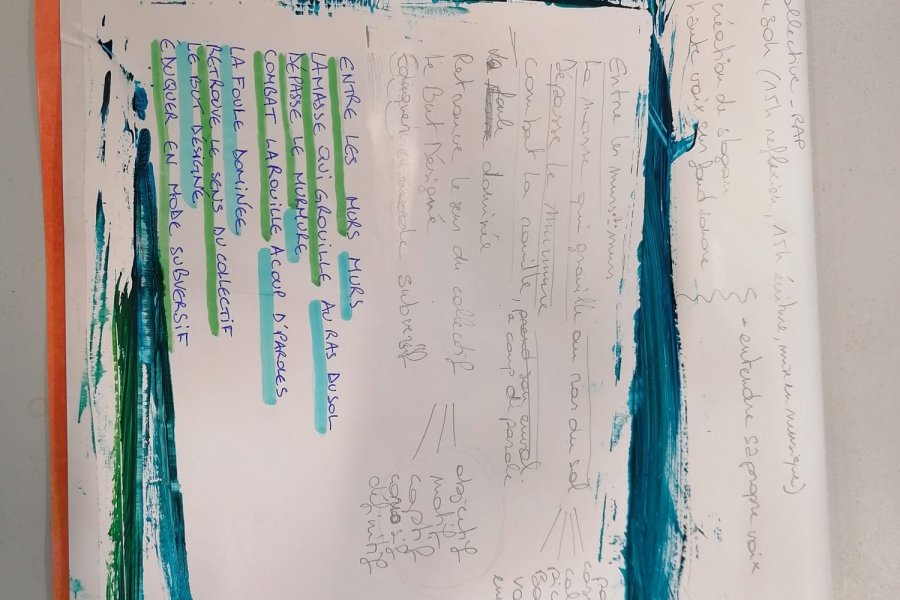 ollective - RAP
son (15h réflexion, 15h écriture, mise en musique)
création de slogan
haute voix en fond sonore
- entendre sa propre voix
Entre les murs murs
La masse qui grouille au ras du sol
Dépasse le murmure
combat la rouille, prend son envol.
à coup de parole
la foule dominée
Retrouve le sens du collectif
le But Désigné
Eduquer en mode subversif
objectif
motif
captif
définitif
ENTRE LES MURS MURS
LA MASSE QUI GROUILLE AU RAS DU SOL
DÉPASSE LE MURMURE
COMBAT LA ROUILLE A COUP D'PAROLES
LA FOULE DOMINÉE
RETROUVE LE SENS DU COLECTIF
LE BUT DÉSIGNÉ
EDUQUER EN MODE SUBVERSIF